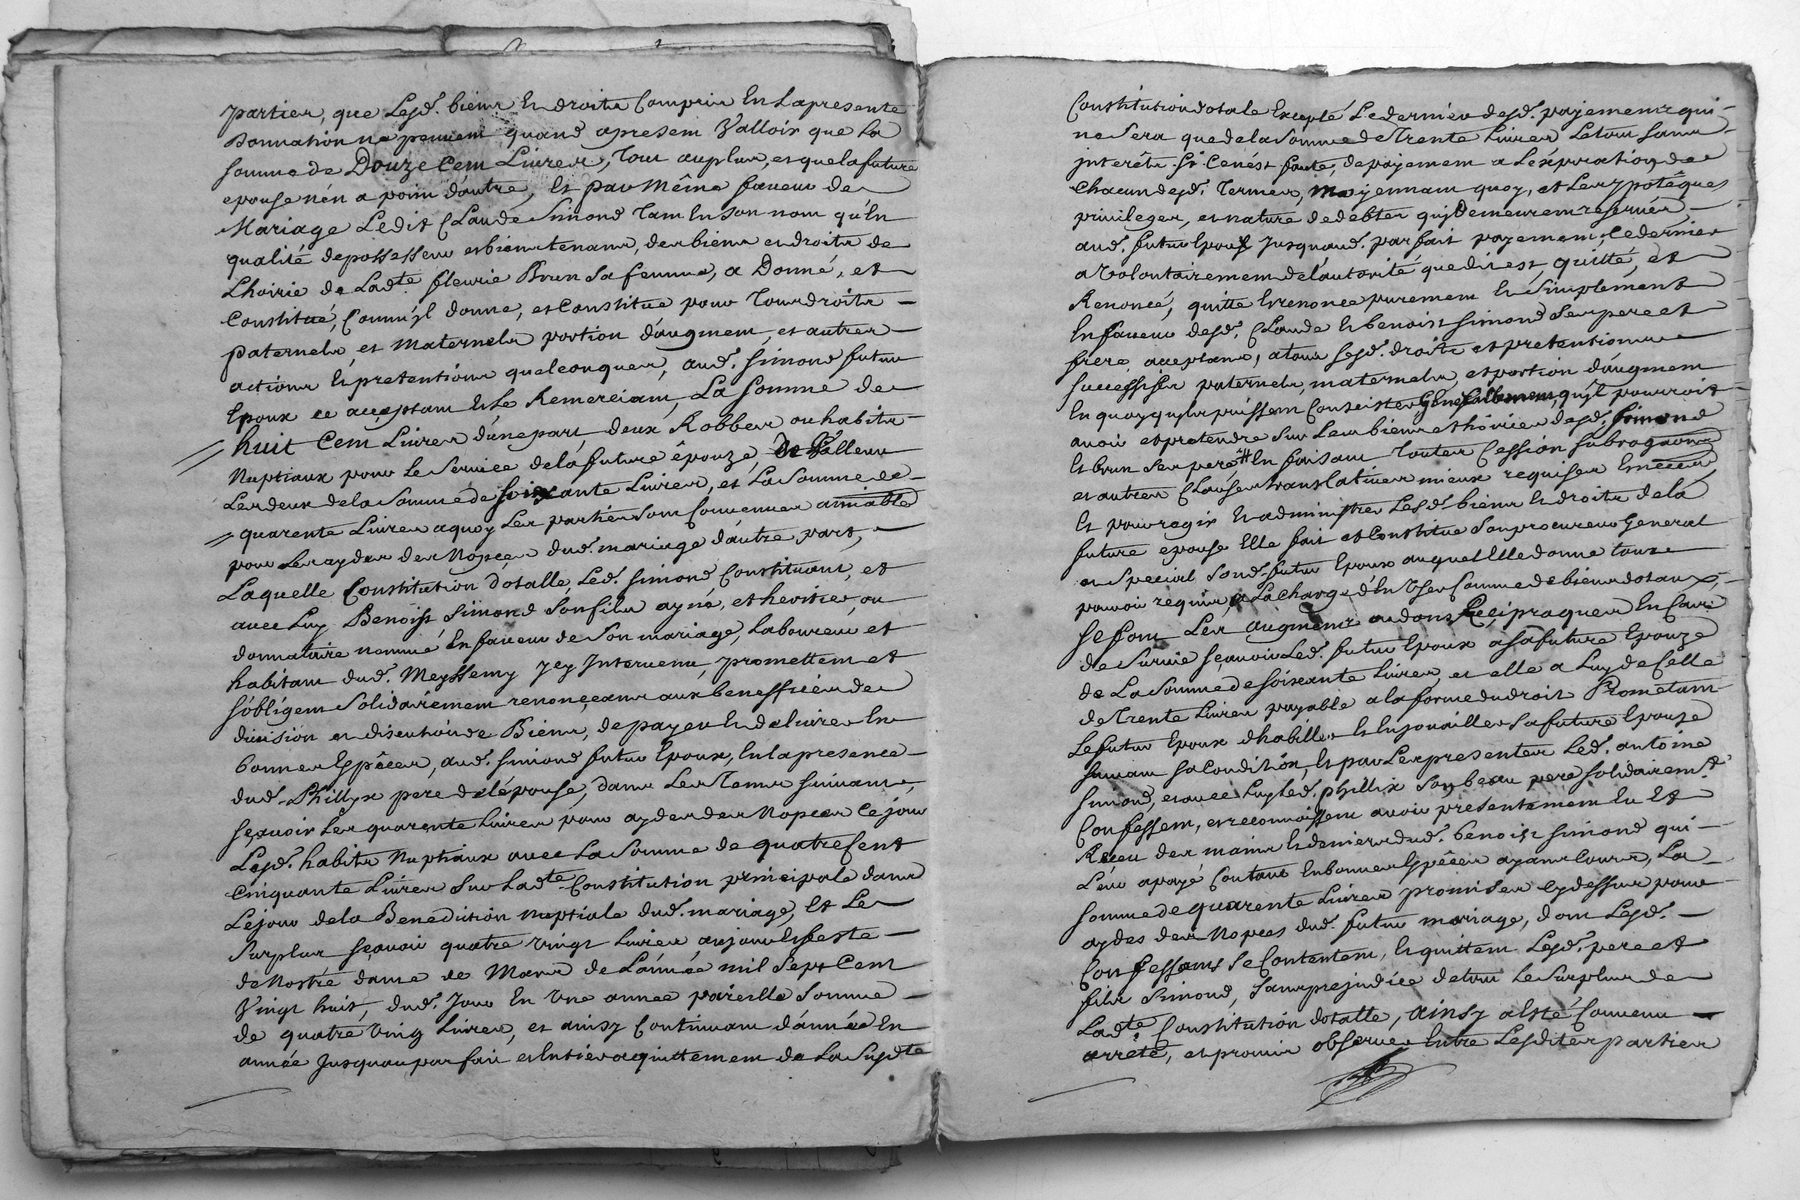 parties, que Lesd. biens Et droits Compris En La presente
Donnation ne peuvent quand apresent Valloir que La
somme de Douze Cent Livres, tout au plus, et que la future
epouse n'en a point d'autre, Et par Même faveur de
Mariage Ledit Claude Simond tant En son nom qu'En
qualité de possesseur et bientenant, des biens et droits de
L'hoirie de Ladte fleurie Brun sa femme, a Donné, et
Constitué, Comm'jl donne, et Constitue pour Tous droits
paternels, et Maternels portion d'augment, et autres
actions Et pretentions quelconques, aud. simond futur
Epoux ce acceptant Et Le Remerciant, La Somme de
huit Cent Livres d'une part, deux Robbes ou habits
Nuptiaux pour Le Service de la future épouze, de Valleur
Les deux de la Somme de soixante Livres, et La Somme de
quarente Livres a quoy Les parties sont Convenues amiable
pour Les aydes des Nopces dud. mariage d'autre part,
Laquelle Constitution dotalle, Led. simond Constituant, et
avec Luy Benoist Simond Son fils ayné, et heritier, ou
donnataire nommé En faveur de Son mariage, Laboureur et
habitant dud. Meyssemy jcy Intervenu, promettent et
s'obligent Solidairement renonçeants aux beneffices de
division et discution de Biens, de payer Et delivrer En
bonnes Espêces, aud. simond futur Epoux, En la presence
dud. Phillyx pere de l'épouse, dans Les Tems suivants,
sçavoir Les quarente Livres pour aydes des Nopces Ce jour
Lesd. habits Nuptiaux avec La Somme de quatre Cent
Cinquante Livres Sur Ladte Constitution principale dans
Le jour de la Benediction Nuptiale dud. mariage, Et Le
Surplus sçavoir quatre Vingt Livres au jour Et feste
de Nostre dame de Mars de L'année mil Sept Cent
Vingt huit, dud. Jour En Une année pareille Somme
de quatre Vingt Livres, et ainsy Continuant d'année En
année Jusqu'au parfait et Entier acquittement de La Susdte
Constitution dotale Excepté Le dernier desd. payements qui
ne Sera que de la Somme de Trente Livres Le tout sans
jnterêts Si Ce n'est faute, de payement a L'éxpiration, de
Chacun desd. Termes, Moyennant quoy, et Les ypotêques
privileges, et nature de debtes qui Demeurent reservés,
aud. futur Epoux Jusqu'aud. parfait payement, Ce dernier
a Volontairement de l'autorité que dit est, quitté, et
Renoncé, quitte Et renonce purement Et Simplement
En faveur desd. Claude Et benoist simond Ses pere et
frere acceptans, a tous sesd. droits et pretentions
Successifs paternels, maternels, et portion d'augment
En quoy qu'ils puissent Consister Generallement, qu'jl pourroit
avoir et pretendre Sur Les biens et hoiries desd. simond
Et brun Ses pere # En faisant Toutes Cession subrogaons
et autres Clauses translatives mieux requises Et necess
Et pour regir Et administrer Lesd. biens Et droits de la
future epouse Elle fait et Constitue Son procureur General
et Special Sond. futur Epoux auquel Elle donne tous
pouvoir requis a La charge d'En User Comme de biens dotaux,
se font Les augments ou dons Reciproques En Cas
de Survie sçavoir Led. futur Epoux a sa future Epouze
de La Somme de soixante Livres, et elle a Luy de Celle
de Trente Livres payable a la forme du droit Prometant
Le futur Epoux d'habiller Et Enjouailler Sa future Epouze
Suivant Sa Condition, Et par L'expresenter Led. antoine
simond, et avec Luy Led. phillix Son beau pere solidairemt
Confessent, et reconnoissent avoir presentement Eu Et
Reçeu des mains Et deniers dud. benoist simond qui
L'eur a payé Contant En bonnes Espêces ayant Cours, La
somme de quarente Livres promises Cy dessus pour
aydes des Nopces dud. futur mariage, dont Lesd.
Confessans Se Contentent, Et quittent Lesd. pere et
fils Simond, Sans prejudice de tout Le Surplus de
Ladte Constitution dotalle, ainsy a Esté Convenu
arrêté, et promis observer Entre Lesdites parties